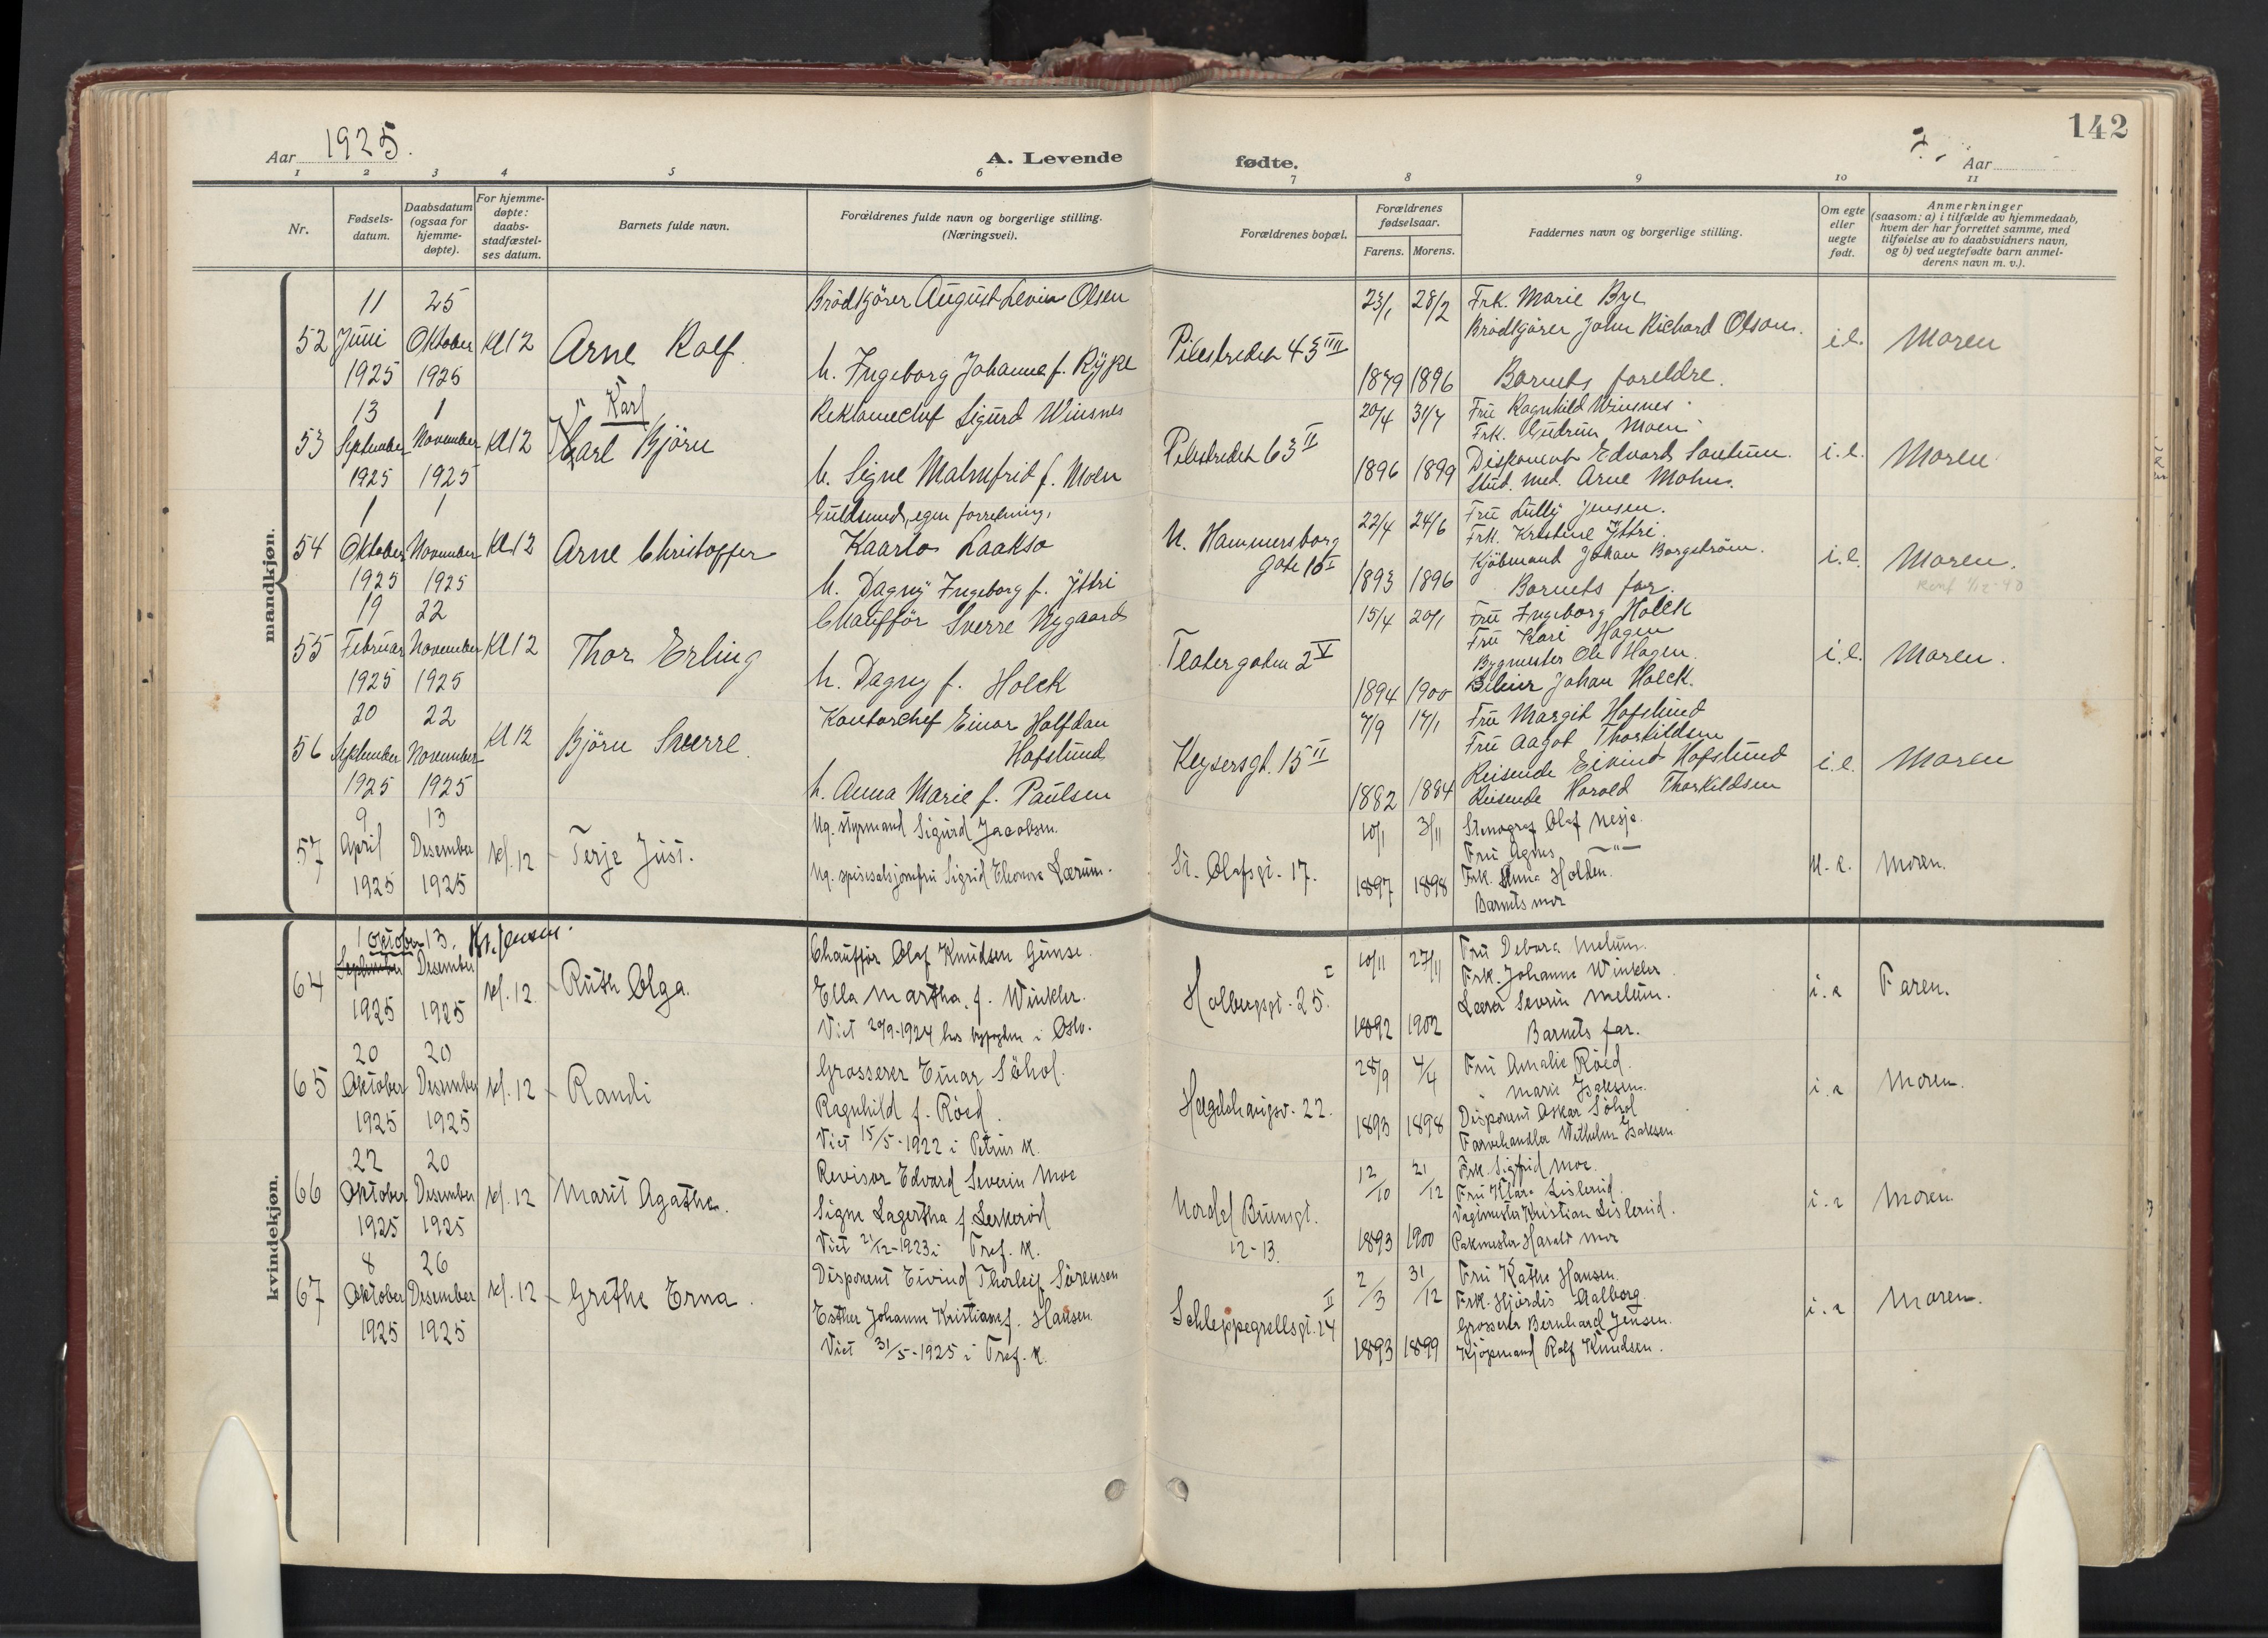 142
Aar 1925.
A. Levende fødte.
Aar
1 2 3 4 5 6 7 8 9 10 11
Nr.
Fødsels-
datum.
Daabsdatum
(ogsaa for
hjemme-
døpte).
For hjemme-
døpte:
daabs-
stadfæstel-
ses datum.
Barnets fulde navn.
Forældrenes fulde navn og borgerlige stilling.
(Næringsvei).
Forældrenes bopæl.
Forældrenes
fødselsaar.
Farens. Morens.
Faddernes navn og borgerlige stilling.
Om egte
eller
uegte
født.
Anmerkninger
(saasom: a) i tilfælde av hjemmedaab,
hvem der har forrettet samme, med
tilføielse av to daabsvidners navn,
og b) ved uegtefødte barn anmel-
derens navn m. v.).
mandkjøn.
52
11
Juni
1925
25
Oktober
1925
Kl 12
Arne Rolf
Brödkjörer August Levin Olsen
h. Ingeborg Johanne f.
Pilestredet 43 IIII
23/1 28/2
1879 1896
Frk. Marie Bye
Brödkjörer John Richard Olsson.
Barnets foreldre.
i.e.
Moren
53
13
September
1925
1
November
1925
Kl 12
Karl
Carl Björn
Reklamechef Sigurd Winsnes
h. Signe Malmfrid f. Moen
Pilestredet 63 II
20/4 31/7
1896 1899
Frü Ragnhild Winsnes
Frk. Gudrun Moen
Disponent Edvard
Stud. med. Arne Mohn.
i.e.
Moren
54
1
Oktober
1925
1
November
1925
Kl 12
Arne Christoffer
Guldsmed, egen forretning,
Kaarlo Laakso
h. Dagny Ingeborg f. Ystri
N. Hammersborg
gate 16 I
22/4 24/6
1893 1896
Frü Lülly Jensen.
Frk. Kristine Ystri.
Kjöbmand Johan Borgström.
Barnets far.
i.e.
Moren.
55
19
Februar
1925
22
November
1925
Kl 12
Thor Erling
Chafför Sverre Nygaard
h. Dagny f. Holck
Teatergaten 2 V
15/4 20/1
1894 1900
Frü Ingeborg Holck
Frü Kari Hagen
Bygmester Ole Hagen.
Johan Holck.
i.e.
Moren.
56
20
September
1925
22
November
1925
Kl 12
Björn Sverre.
Kontorchef Einar Halfdan
Hafslund
h. Anna Marie f. Paulsen
Keysersgt. 15 II
7/9 17/1
1882 1884
Frü Margit Hafslund
Frü Aagot Thorkildsen
Reisende Eivind Hafslund
Reisende Harald Thorkildsen
i.e.
Moren
57
9
April
1925
13
Desember
1925
kl. 12
Terje Just.
Ug. styrmand Sigurd Jacobsen.
Ug. spisesalsjomfru Sigrid Eleonora Lærum.
St. Olafsgt. 17.
10/1 3/11
1897 1898
Stenograf Olaf Nesje.
Fru Agnes —"—
Frk. Anna Holden.
Barnets mor
u.e.
Moren.
kvindekjøn.
64
1 Oktober
September
1925
13.
Desember
1925
Kr. Jensen.
kl. 12.
Ruth Olga.
Chauffør Olaf Knudsen Gimse.
Ella Martha f. Winkler.
Viet 20/9-1924 hos byfogden i Oslo.
Holbergsgt. 25. I
10/11 27/11
1892 1902
Fru Debora Melum.
Frk. Johanne Winkler.
Lærer Severin Melum.
Barnets far.
i.e
Faren.
65
20
Oktober
1925
20
Desember
1925
kl. 12
Randi
Grosserer Einar Söhol.
Ragnhild f. Röed.
Viet 15/5-1922 i Petrus K.
Hegdehaugsv. 22.
28/9 4/4
1893 1898
Fru Amalie Röed.
" Marie Isaksen.
Disponent Oskar Söhol
Farvehandler Wilhelm Isaksen.
i.e
Moren.
66
22
Oktober
1925
20
Desember
1925
kl. 12
Marit Agathe.
Revisor Edvard Severin Moe
Signe Lagertha f. Leskeröd
Viet 21/12-1923 i Tref. K.
Nordal Brunsgt.
12-13.
12/10 21/12
1893 1900
Frk. Sigfrid Moe.
Fru Klara Lislerud.
Vagtmester Kristian Lislerud.
Pakmester Harald Moe
i.e
Moren.
67
8
Oktober
1925
26
Desember
1925
kl. 12
Grethe Erna.
Disponent Eivind Thorleif Sörensen
Esther Johanne Kristiane f. Hansen
Viet 31/5-1925 i Tref. K.
Schleppegrellsgt. 14 II
2/3 31/12
1893 1899
Fru Kathe Hansen.
Frk. Hjördis Aalborg.
Grosserer Bernhard Jensen.
Kjöpmand Rolf Knudsen.
i.e
Moren.